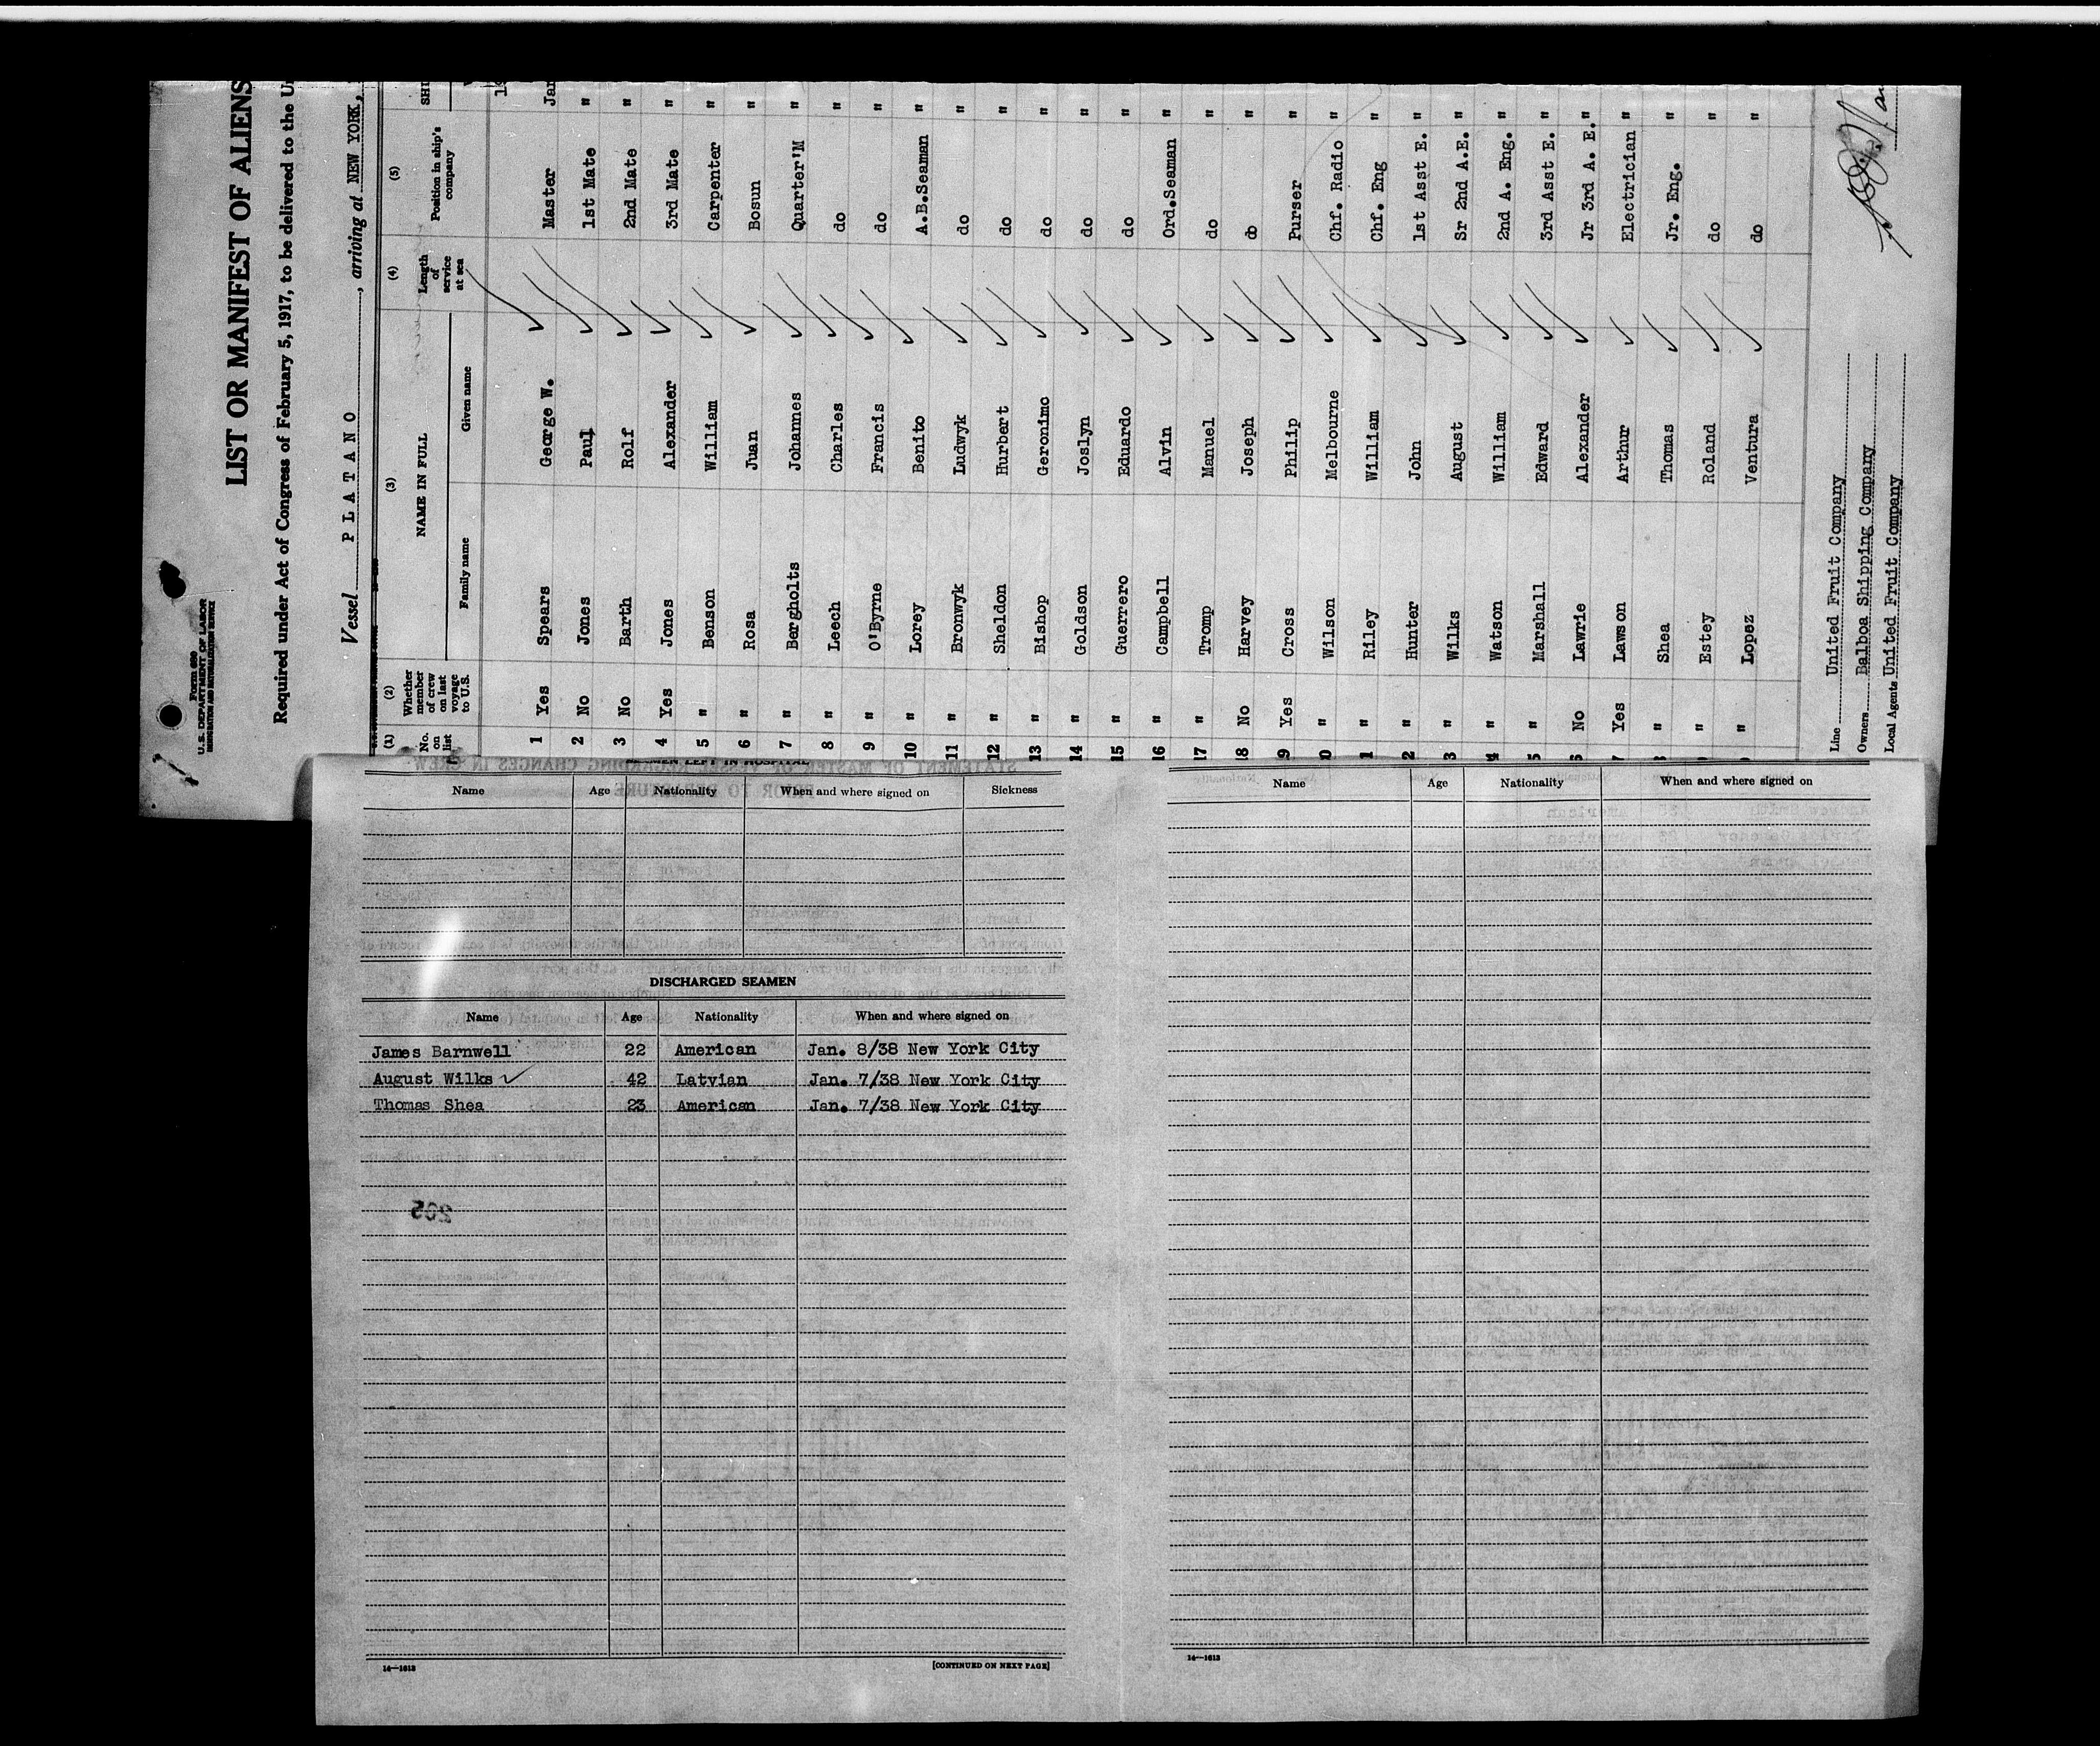 Form 680
U. S. DEPARTMENT OF LABOR
IMMIGRATION AND NATURALIZATION SERVICE
LIST OR MANIFEST OF ALIENS
Required under Act of Congress of February 5, 1917, to be delivered to the U
Vessel PLATANO, arriving at NEW YORK,
(1) (2) (3) (4) (5)
No. on list Whether member of crew on last voyage to U.S. NAME IN FULL Family name Given name Length of service at sea Position in ship's company SHI
1 Yes Spears George W. Master Jan
2 No Jones Paul 1st Mate "
3 No Barth Rolf 2nd Mate "
4 Yes Jones Alexander 3rd Mate "
5 " Benson William Carpenter "
6 " Rosa Juan Bosun "
7 " Bergholts Johannes Quarter'M "
8 " Leech Charles do "
9 " O'Byrne Francis do "
10 " Lorey Benito A.B.Seaman "
11 " Bronwyk Ludwyk do "
12 " Sheldon Hurbert do "
13 " Bishop Geronimo do "
14 " Goldson Joslyn do "
15 " Guerrero Eduardo do "
16 " Campbell Alvin Ord.Seaman "
17 " Tromp Manuel do "
18 No Harvey Joseph do "
9 Yes Cross Philip Purser "
0 " Wilson Melbourne Chf. Radio "
1 " Riley William Chf. Eng "
2 " Hunter John 1st Asst E. "
3 " Wilks August Sr 2nd A.E. "
4 " Watson William 2nd A. Eng. "
5 " Marshall Edward 3rd Asst E. "
6 No Lawrie Alexander Jr 3rd A. E. "
7 Yes Lawson Arthur Electrician "
" Shea Thomas Jr. Eng. "
" Estey Roland do "
" Lopez Ventura do "
Line United Fruit Company
Owners Balboa Shipping Company
Local Agents United Fruit Company
SEAMEN LEFT IN HOSPITAL
Name Age Nationality When and where signed on Sickness
DISCHARGED SEAMEN
Name Age Nationality When and where signed on
James Barnwell 22 American Jan. 8/38 New York City
August Wilks 42 Latvian Jan. 7/38 New York City
Thomas Shea 23 American Jan. 7/38 New York City
205
14—1613 [CONTINUED ON NEXT PAGE]
Name Age Nationality When and where signed on
14—1613